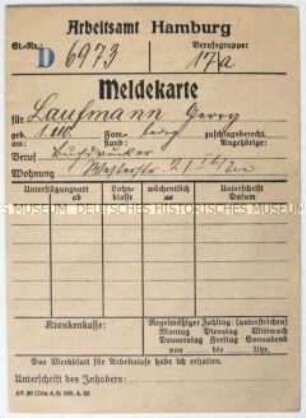 Arbeitsamt Hamburg
St.-Nr.: D 6973
Berufsgruppe 17/a
Meldekarte
für Laufmann Georg
geb. am: Fam.-stand: ledig zuschlagsberecht. Angehörige:
Beruf Buchdrucker
Wohnung
Unterstützungsart ab Lohnklasse wöchentlich RM Unterschrift Datum
MUSEUM DEUTSCHES HISTORISCHES MUSEUM
Krankenkasse:
Regelmäßiger Zahltag: (unterstreichen)
Montag Dienstag Mittwoch
Donnerstag Freitag Sonnabend
von bis Uhr.
Das Merkblatt für Arbeitslose habe ich erhalten.
Unterschrift des Inhabers: